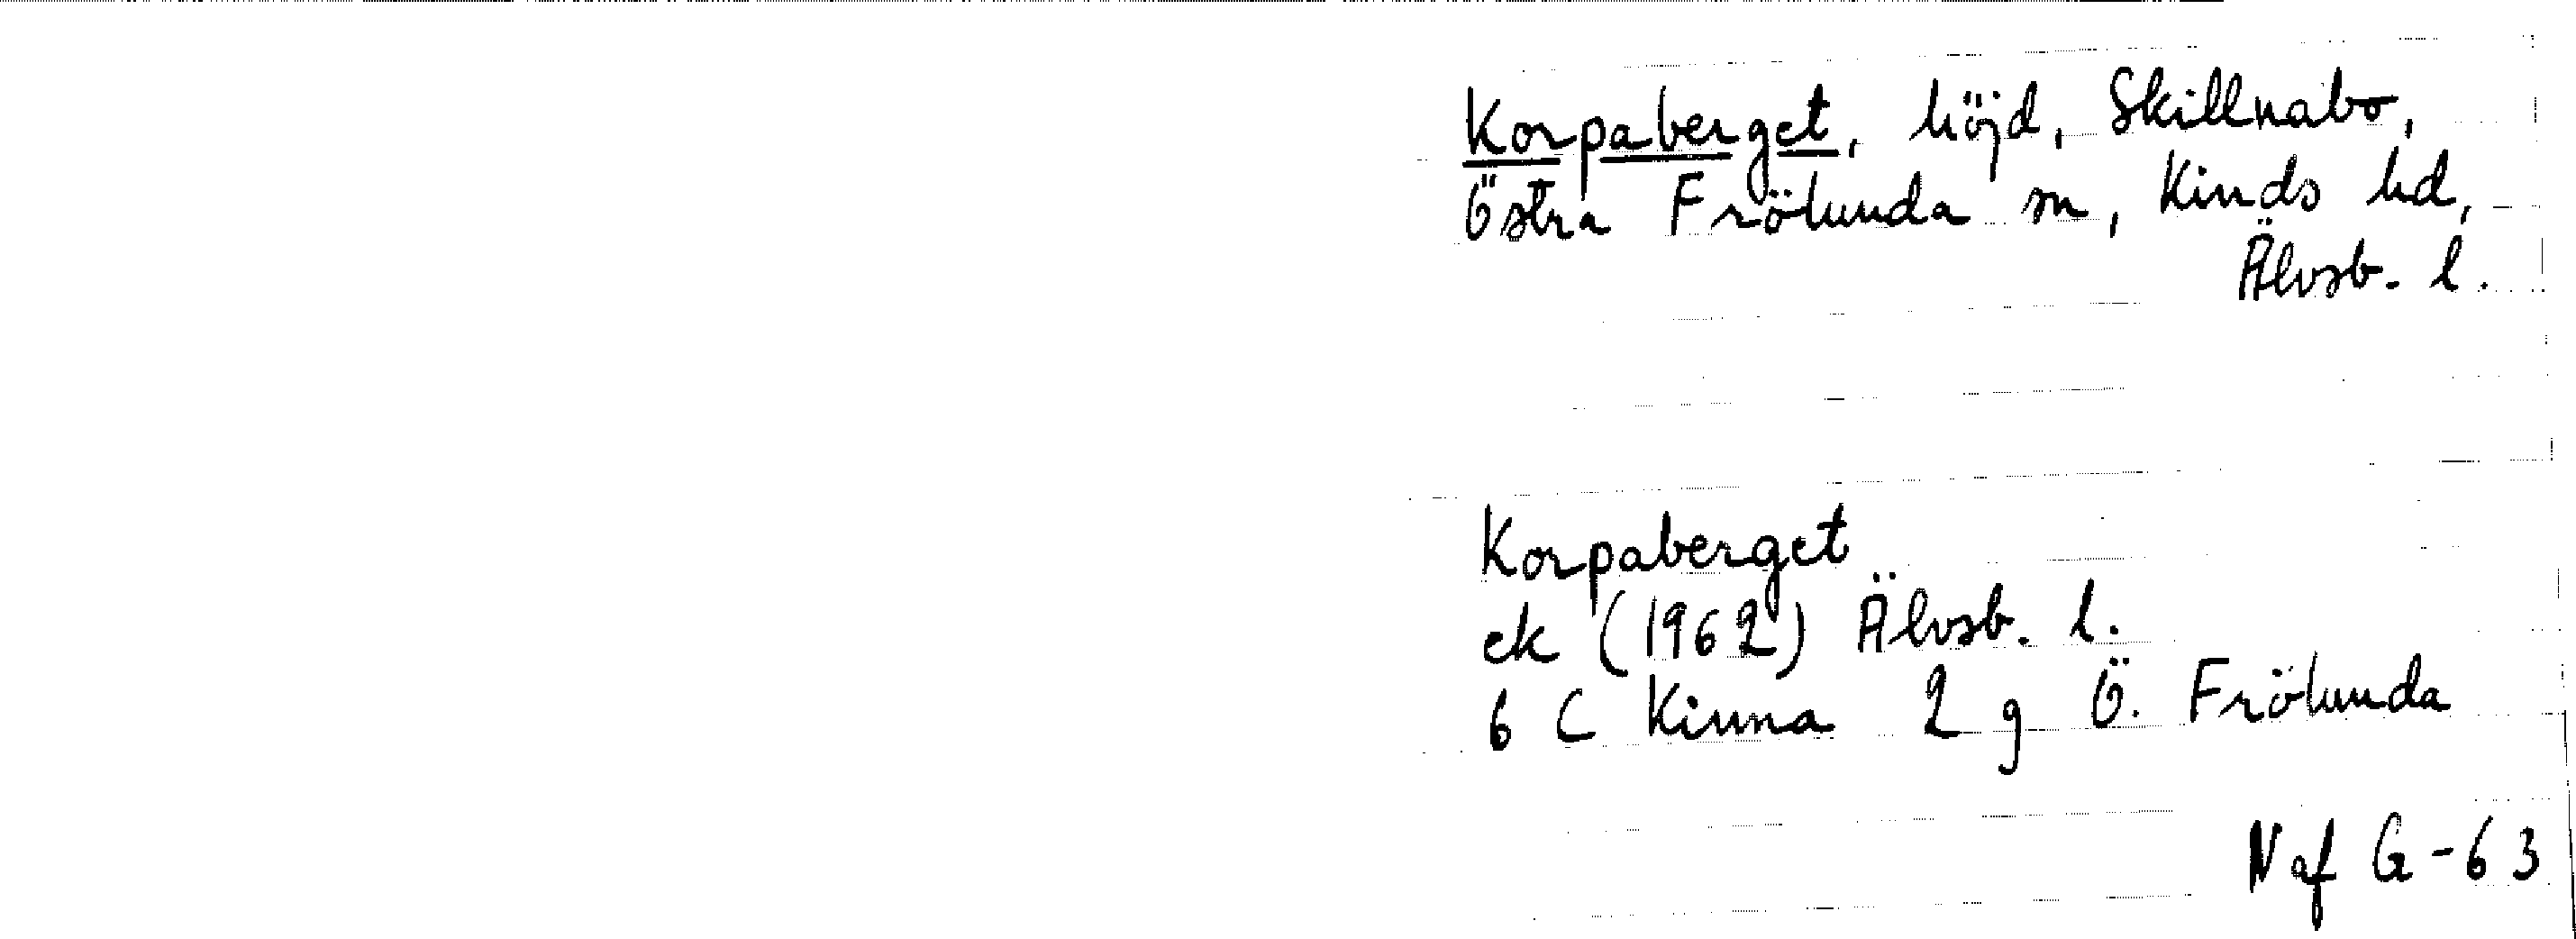 Korpaberget, höjd, Skillnabo,
Östra Frölunda sn, Kinds hd,
Älvsb. l.
Korpaberget
ek (1962) Älvsb. l.
6 C Kinna 2 g Ö. Frölunda
Naf G-63